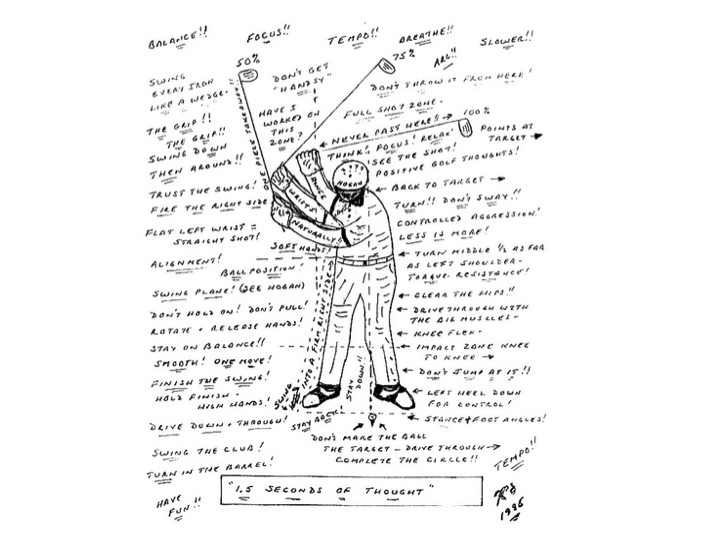 BALANCE!! FOCUS!! TEMPO!! BREATHE!! SLOWER!!
50%
75%
ARG!!
SWING
EVERY IRON
LIKE A WEDGE.
DON'T GET
"HANDSY"
DON'T THROW IT FROM HERE!
ONE PIECE TAKEAWAY!!
HAVE I
WORKED ON
THIS
ZONE?
FULL SHOT ZONE.
100%
THE GRIP!!
THE GRIP!!
NEVER PAST HERE!!
POINTS AT
TARGET
SWING DOWN
THEN AROUND!!
THINK! FOCUS! RELAX!
SEE THE SHOT!
POSITIVE GOLF THOUGHTS!
TRUST THE SWING!
FIRE THE RIGHT SIDE
HOGAN
BACK TO TARGET
HINGE
WRISTS
NATURALLY!!
TURN!! DON'T SWAY!!
FLAT LEFT WRIST =
STRAIGHT SHOT!
CONTROLLED AGGRESSION!
LESS IS MORE!
SOFT HANDS!
ALIGNMENT!
BALL POSITION!
TURN MIDDLE 1/2 AS FAR
AS LEFT SHOULDER-
TORQUE. RESISTANCE!
SWING PLANE! (SEE HOGAN)
CLEAR THE HIPS!!
DON'T HOLD ON! DON'T PULL!
ROTATE + RELEASE HANDS!
DRIVE THROUGH WITH
THE BIG MUSCLES-
KNEE FLEX-
STAY ON BALANCE!!
IMPACT ZONE KNEE
TO KNEE
SMOOTH! ONE MOVE!
FINISH THE SWING!
DON'T JUMP AT IT!!
SWING INTO A FIRM RIGHT SIDE
STAY
DOWN!!
HOLD FINISH -
HIGH HANDS!
LEFT HEEL DOWN
FOR CONTROL!
DRIVE DOWN + THROUGH!
STAY BACK!
STANCE + FOOT ANGLES!
SWING THE CLUB!
TURN IN THE BARREL!
DON'T MAKE THE BALL
THE TARGET - DRIVE THROUGH
COMPLETE THE CIRCLE!!
TEMPO!!
"1.5 SECONDS OF THOUGHT"
HAVE
FUN!!